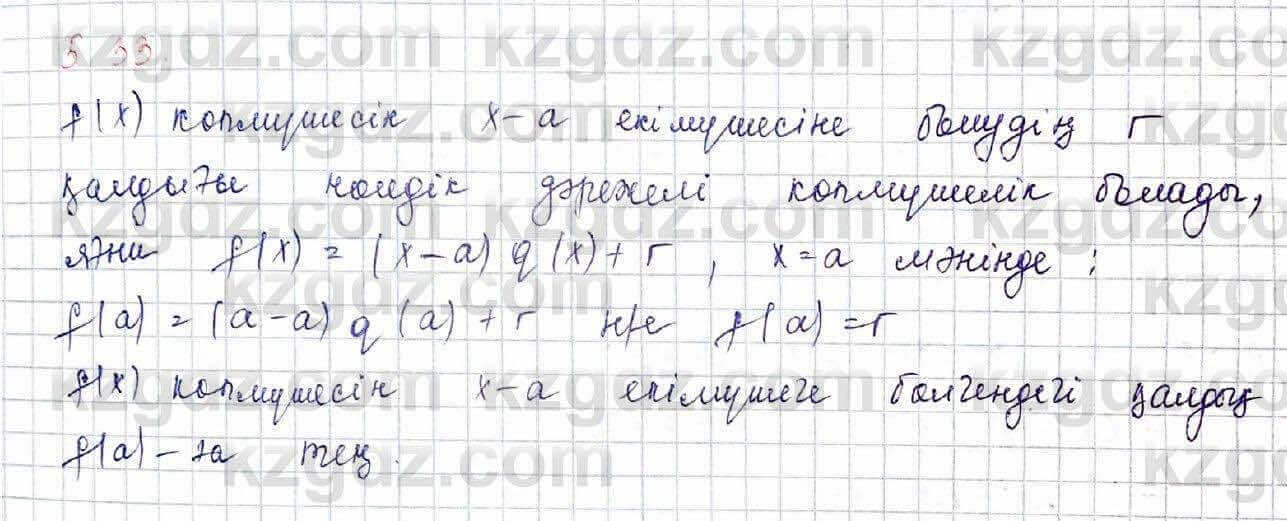 5.33
f(x) копмүшесін x-a екімүшесіне бөлудің r
қалдығы нөлдік дәрежелі көпмүшелік болады,
яғни f(x) = (x-a) q(x) + r, x=a мәнінде:
f(a) = (a-a) q(a) + r н/е f(a) = r
f(x) копмүшесін x-a екімүшеге бөлгендегі қалдық
f(a)-ға тең.
kzgdz.com